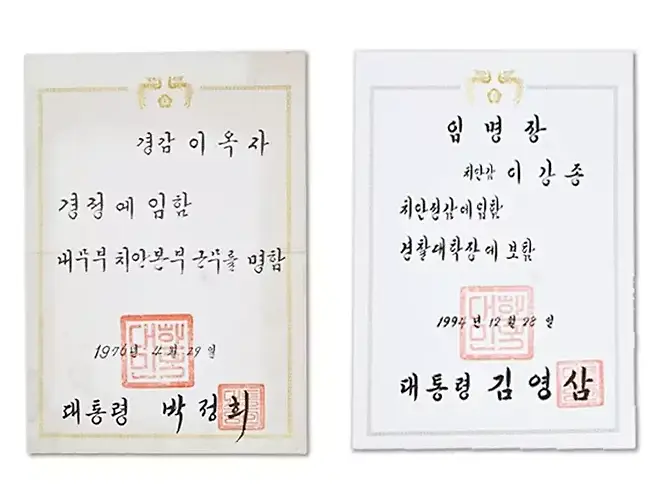 경감 이 옥 자
경정에 임함
내무부 치안본부 근무를 명함
대한
민국
1976년 4월 29일
대통령 박정희
임 명 장
치안감 이 강 종
치안정감에 임함
경찰대학장에 보함
대한
민국
1994년 12월 28일
대통령 김 영 삼